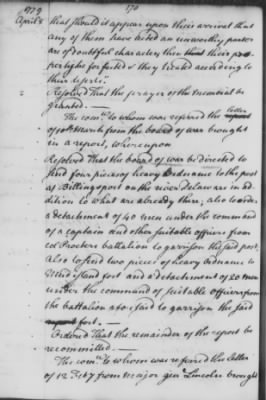 1779
170
April 8
that should it appear upon their arrival that
any of them have acted an unworthy part or
are of doubtful character then their
be & they treated according to
their deserts.
Resolved That the prayer of the memorial be
granted. —
The comee. to whom was referred the letter
of 10th March from the board of war brought
in a report, whereupon
Resolved That the board of war be directed to
send four pieces of heavy Ordnance to the post
at Billingsport on the river Delaware in ad
dition to what are already there; also to order
a detachment of 40 men under the command
of a captain and other suitable officers from
col Proctors battalion to garrison the said post.
Also to send two pieces of heavy ordnance to
Mud island fort and a detachment of 20 men
under the command of suitable officers from
the battalion aforesaid to garrison the said
fort. —
Ordered That the remainder of the report be
recommitted. —
The comee. to whom was referred the letter
of 12 Feby from major genl Lincoln brought